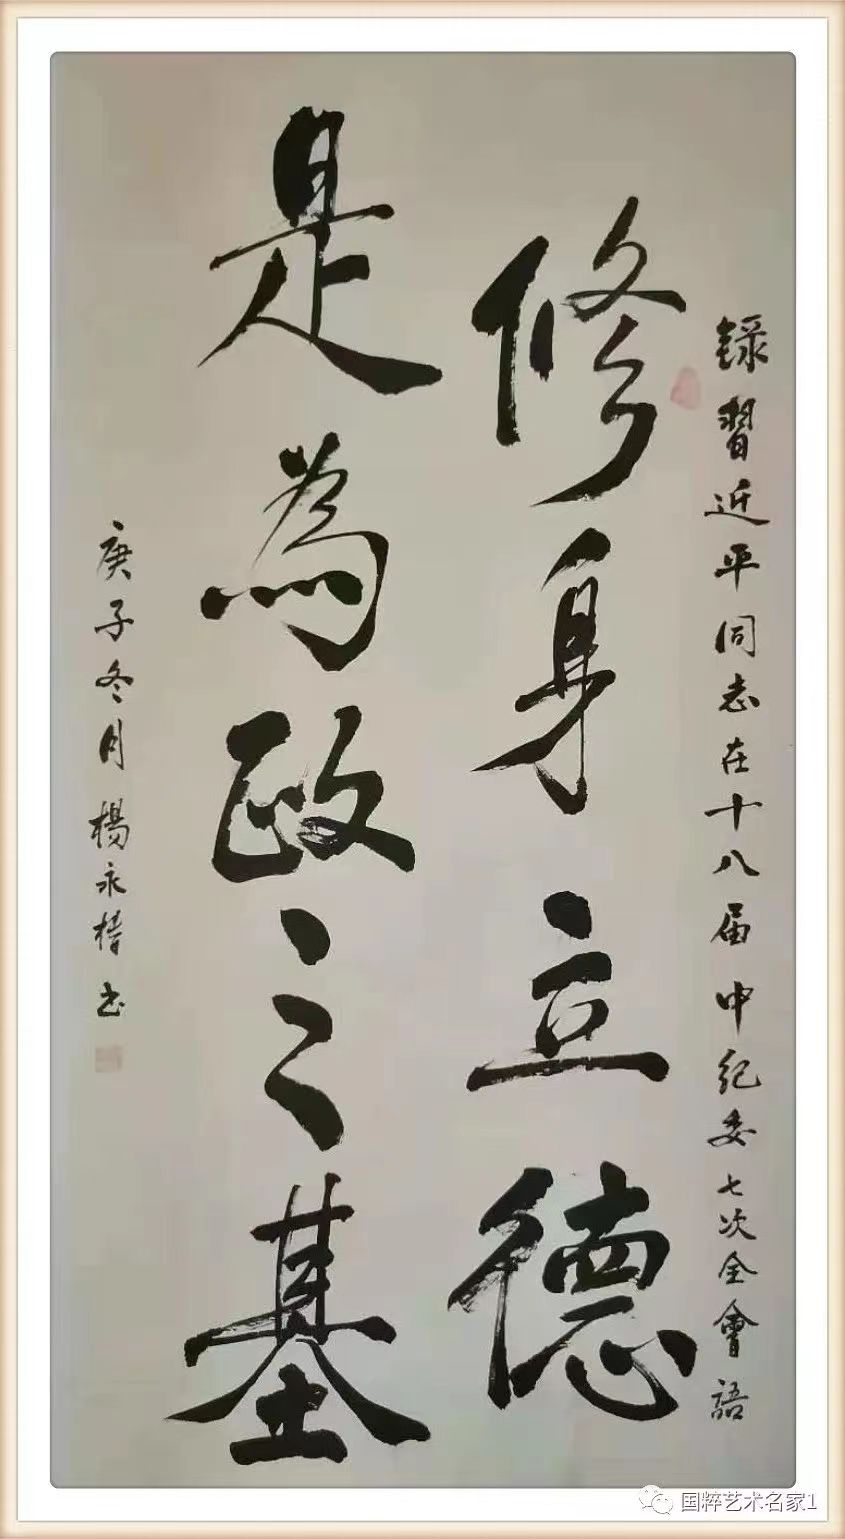 錄習近平同志在十八届中紀委七次全會語
修身立德
是為政之基
庚子冬月楊永椿书
国粹艺术名家1